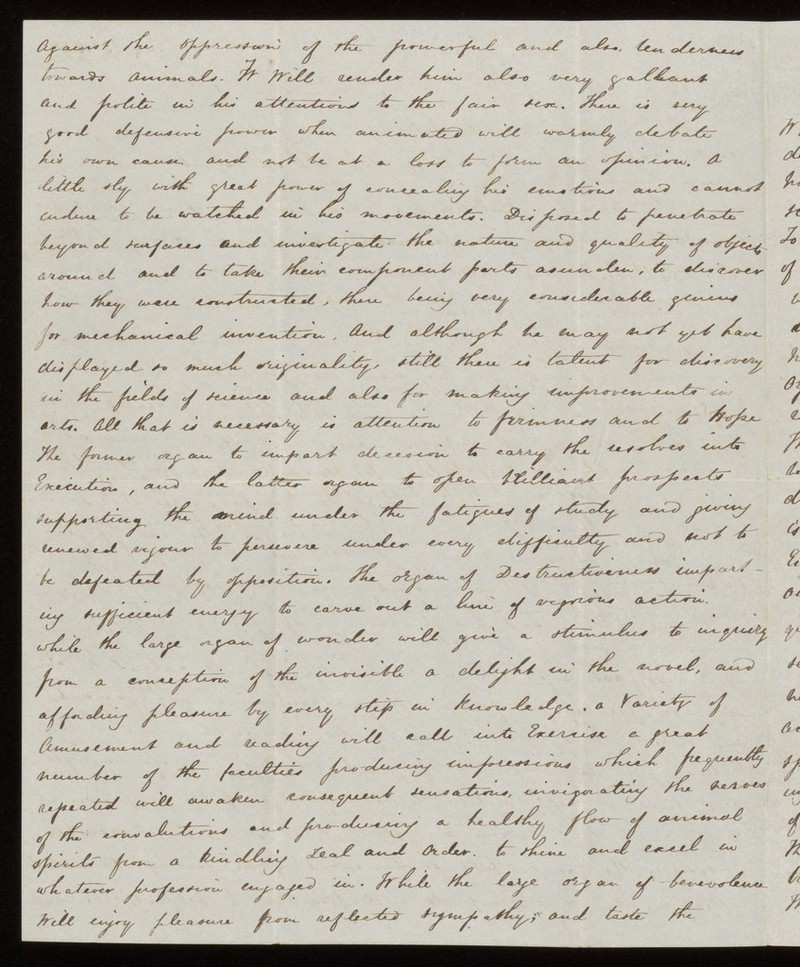 against the oppression of the powerful and also. tenderness
towards animals. It Will render him also very gallant
and polite in his attentions to the fair sex. There is very
good defensive power when animated will warmly debate
his own cause and not be at a loss to form an opinion. A
little sly with great power of concealing his emotions and cannot
endure to be watched in his movements. Disposed to penetrate
beyond surfaces and investigate the nature and quality of objects
around and to take their component parts asunder, to discover
how they were constructed, there being very considerable genius
for mechanical invention. And although he may not yet have
displayed so much originality, still there is talent for discovery
in the fields of science and also for making improvements in
arts. All that is necessary is attention to firmness and to Hope
The former organ to impart decesion to carry the resolves into
Execution, and the latter organ to open brilliant prospects
supporting the mind under the fatigues of study and giving
renewed vigour to persevere under every difficulty and not to
be defeated by opposition. The organ of Destructiveness impart-
ing sufficient energy to carve out a line of vigorous action.
while the large organ of wonder will give a stimulus to inquiry
from a conception of the invisible a delight in the novel, and
affording pleasure by every step in Knowledge. a Variety of
Amusement and reading will call into Exercise a great
number of the faculties producing impressions which frequently
repeated will awaken consequent sensations, invigorating the nerves
of the convolutions and producing a healthy flow of animal
spirits from a kindling Zeal and Order. to shine and excel in
whatever profession engaged in. While the large organ of benevolence
Will enjoy pleasure from reflected sympathy; and taste the